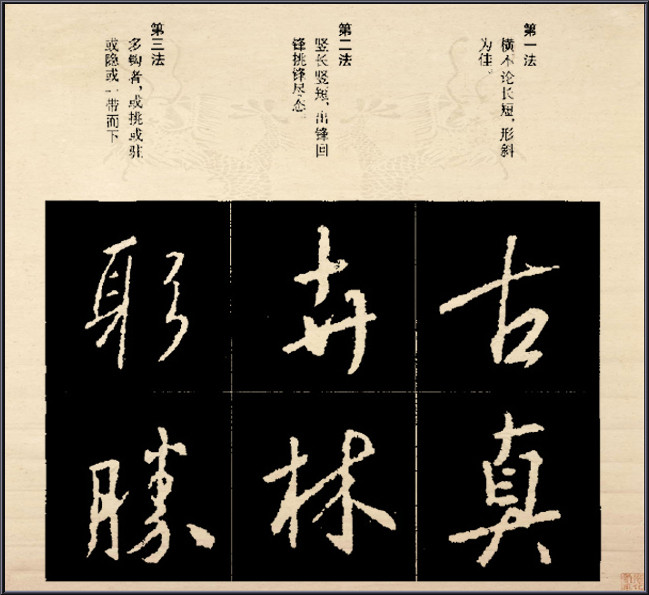 第一法
横不论长短，形斜
为佳。
第二法
竖长竖短，出锋回
锋挑锋尽态
第三法
多钩者，或挑或驻
或隐或一带而下
古
真
卉
林
勝